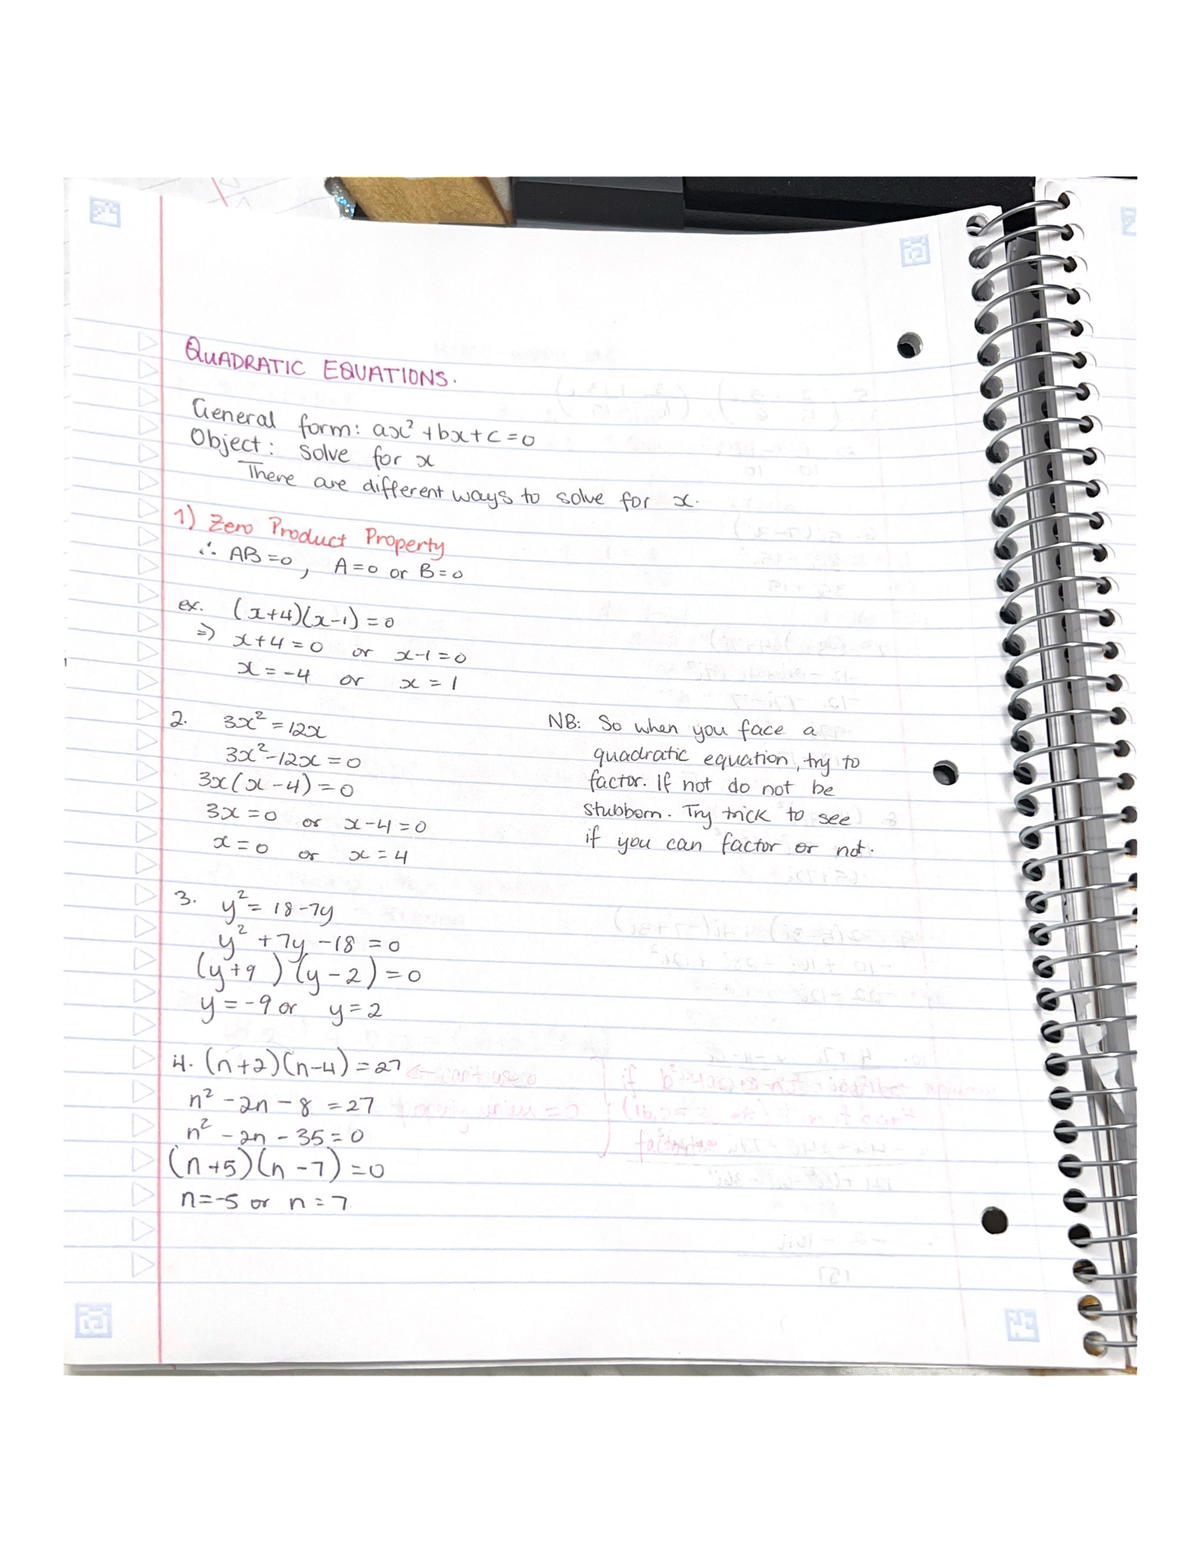 QUADRATIC EQUATIONS.
General form: ax² + bx + c = 0
Object: Solve for x
There are different ways to solve for x.
1) Zero Product Property
∴ AB = 0, A = 0 or B = 0
ex. (x+4)(x-1) = 0
⇒ x+4 = 0 or x-1 = 0
x = -4 or x = 1
2. 3x² = 12x
3x² - 12x = 0
3x(x - 4) = 0
3x = 0 or x - 4 = 0
x = 0 or x = 4
NB: So when you face a
quadratic equation, try to
factor. If not do not be
stubborn. Try trick to see
if you can factor or not.
3. y² = 18 - 7y
y² + 7y - 18 = 0
(y + 9)(y - 2) = 0
y = -9 or y = 2
4. (n+2)(n-4) = 27
n² - 2n - 8 = 27
n² - 2n - 35 = 0
(n+5)(n-7) = 0
n = -5 or n = 7